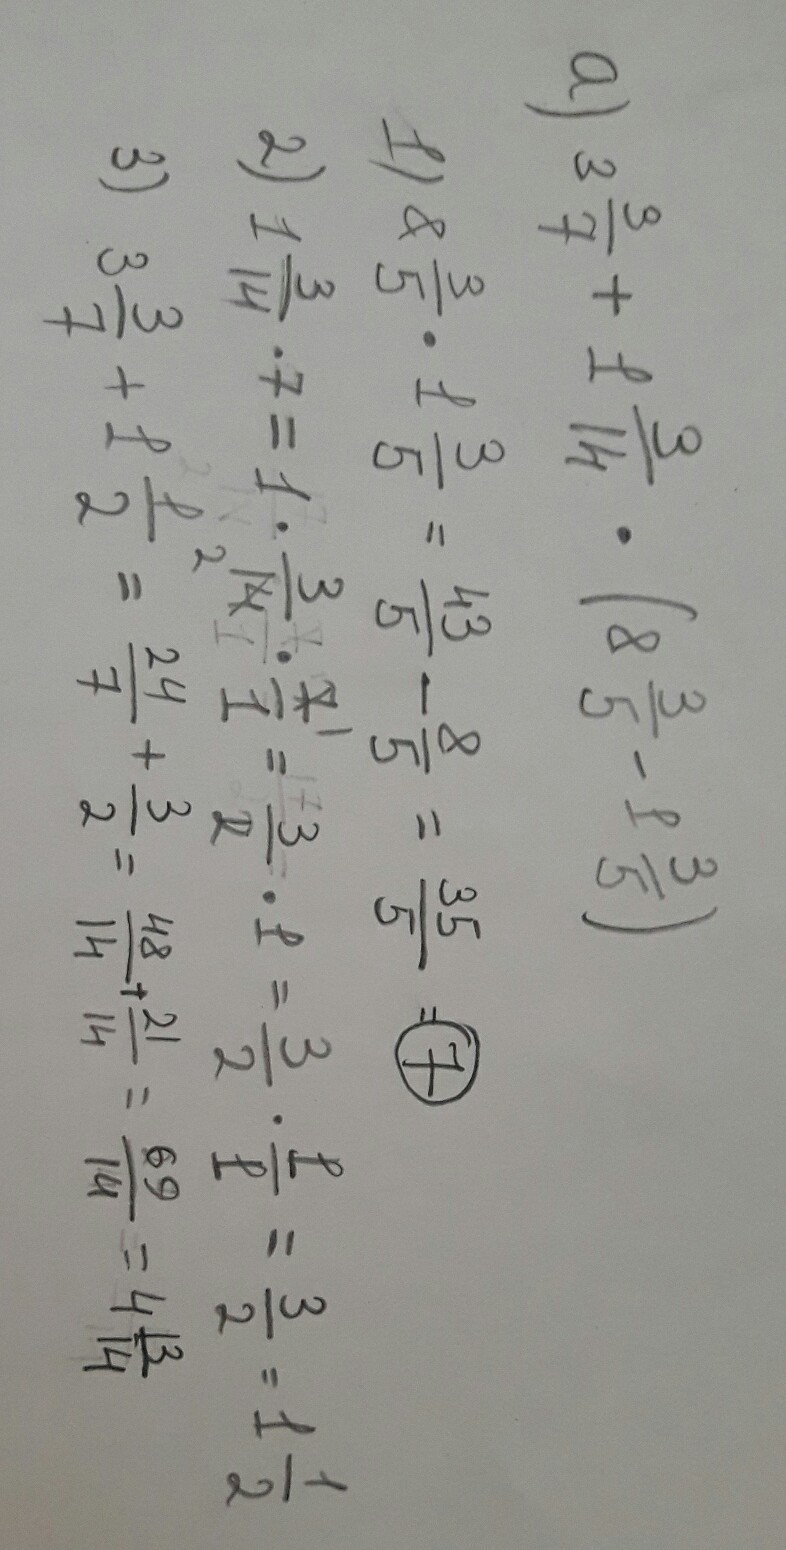 a) 3 3/7 + 1 3/14 · (8 3/5 - 1 3/5)
1) 8 3/5 · 1 3/5 = 43/5 - 8/5 = 35/5 = 7
2) 1 3/14 · 7 = 1 · 3/14 2 · 7/1 1 = 3/2 · 1 = 3/2 · 1/1 = 3/2 = 1 1/2
3) 3 3/7 + 1 1/2 = 24/7 + 3/2 = 48/14 + 21/14 = 69/14 = 4 13/14